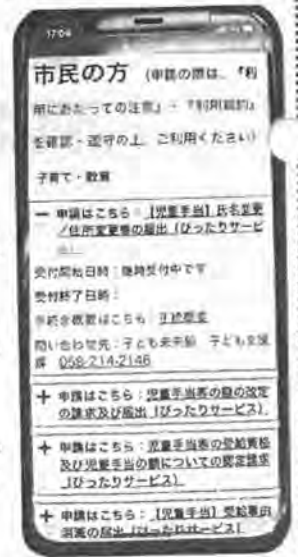 17:04
市民の方 (申請の際は、『利
用にあたっての注意』・『利用規約』
を確認・遵守の上、ご利用ください)
子育て・教育
－ 申請はこちら：【児童手当】氏名変更
／住所変更等の届出（ぴったりサービ
ス）
受付開始日時：随時受付中です
受付終了日時：
手続き概要はこちら：手続概要
問い合わせ先：子ども未来部 子ども支援
課 058-214-2146
＋ 申請はこちら：児童手当等の額の改定
の請求及び届出（ぴったりサービス）
＋ 申請はこちら：児童手当等の受給資格
及び児童手当の額についての認定請求
（ぴったりサービス）
＋ 申請はこちら：【児童手当】受給事由
消滅の届出（ぴったりサービス）